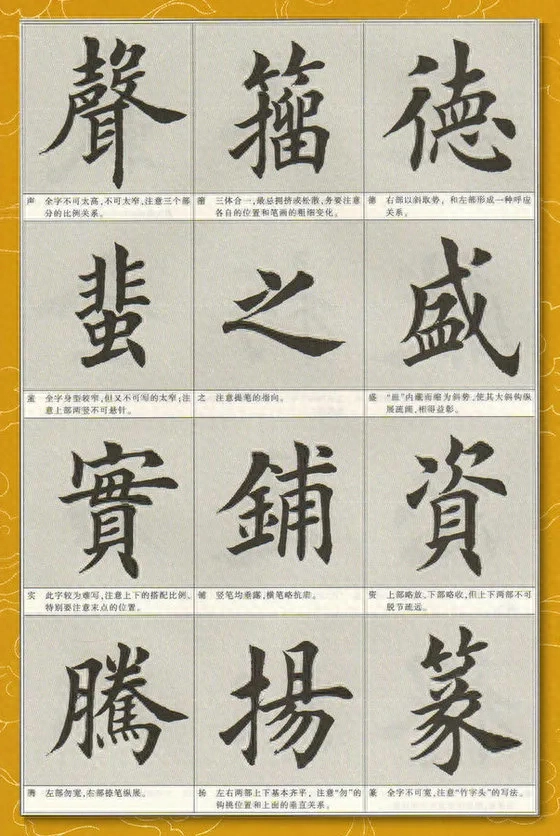 聲
声 全字不可太高,不可太窄,注意三个部
分的比例关系。
籀
籀 三体合一,最忌拥挤或松散,务要注意
各自的位置和笔画的粗细变化。
德
德 右部以斜取势,和左部形成一种呼应
关系。
蜚
蜚 全字身型较窄,但又不可写的太窄;注
意上部两竖不可悬针。
之
之 注意提笔的指向。
盛
盛 “皿”内藏而缩为斜势,使其大斜钩纵
展疏阔,相得益彰。
實
实 此字较为难写,注意上下的搭配比例、
特别要注意末点的位置。
鋪
铺 竖笔均垂露,横笔略抗肩。
資
资 上部略放、下部略收,但上下两部不可
脱节疏远。
騰
腾 左部勿宽,右部捺笔纵展。
揚
扬 左右两部上下基本齐平,注意“勿”的
钩挑位置和上面的垂直关系。
篆
篆 全字不可宽,注意“竹字头”的写法。